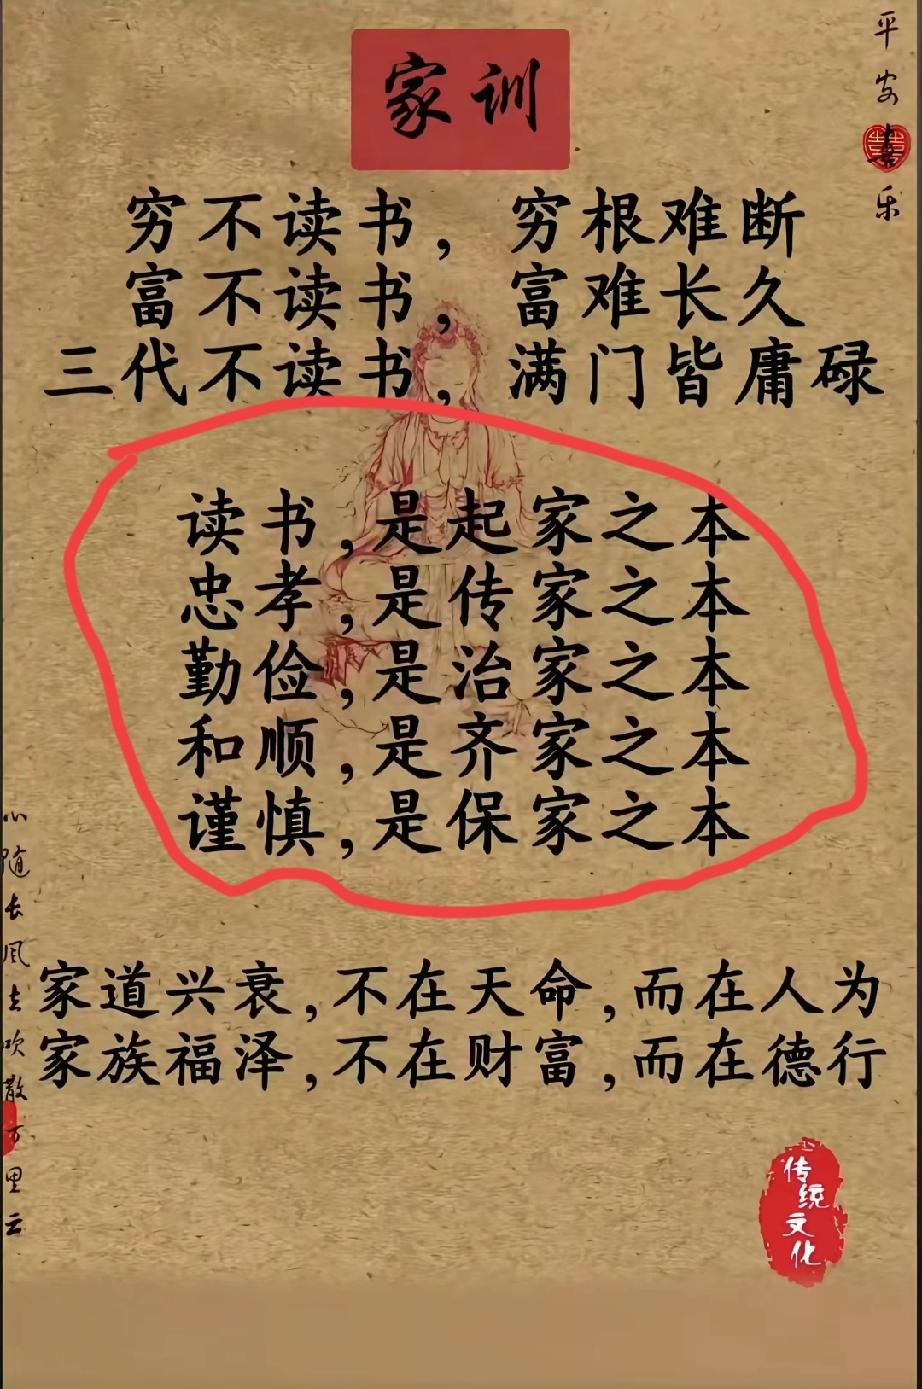 家训
平安喜乐
穷不读书，穷根难断
富不读书，富难长久
三代不读书，满门皆庸碌
读书，是起家之本
忠孝，是传家之本
勤俭，是治家之本
和顺，是齐家之本
谨慎，是保家之本
心随长风去吹散万里云
家道兴衰，不在天命，而在人为
家族福泽，不在财富，而在德行
传统文化